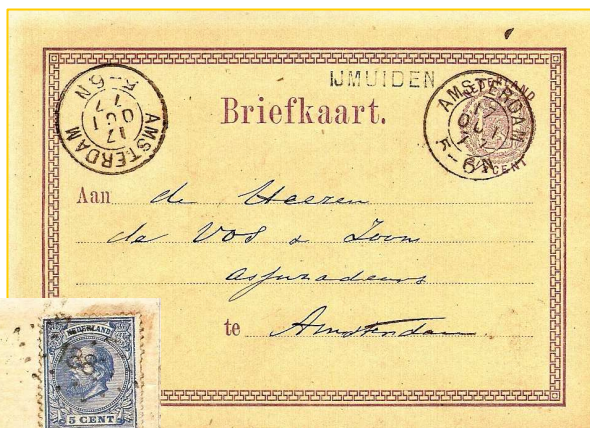 IJMUIDEN
Briefkaart.
AMSTERDAM
17
OCT
77
5-6N
AMSTERDAM
17
OCT
5-6N
NEDERLAND
CENT
Aan de Heeren
de Vos & Zoon
assuradeurs
te Amsterdam
NEDERLAND
5 CENT